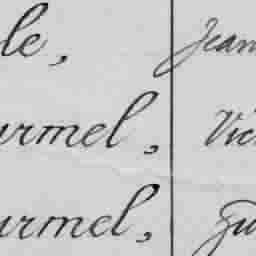 le, Jean
urmel, Vic
urmel,